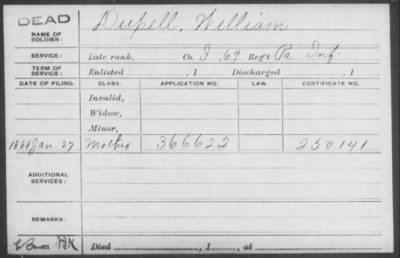 DEAD
NAME OF SOLDIER: Dupell, William
SERVICE: Date rank, Co. I, 69 Reg't Pa Inf
TERM OF SERVICE: Enlisted , 1 Discharged , 1
DATE OF FILING. CLASS. APPLICATION NO. LAW. CERTIFICATE NO.
Invalid,
Widow,
Minor,
Jan. 27 Mother 366622 250141
ADDITIONAL SERVICES:
REMARKS:
Died , 1 , at